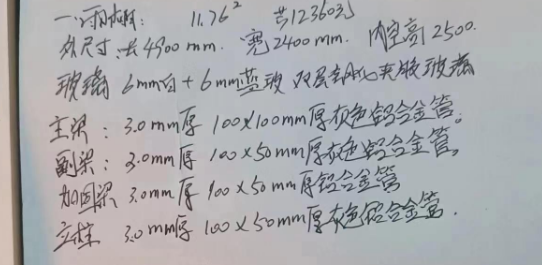 一、雨棚: 11.76² 共12360元
外尺寸:长4900mm. 宽2400mm. 内空高2500.
玻璃 6mm白+6mm蓝玻 双层钢化夹胶玻璃
主梁: 3.0mm厚 100X100mm厚灰色铝合金管。
副梁: 3.0mm厚 100X50mm厚灰色铝合金管。
加固梁 3.0mm厚 100X50mm厚铝合金管
立柱 3.0mm厚 100X50mm厚灰色铝合金管.